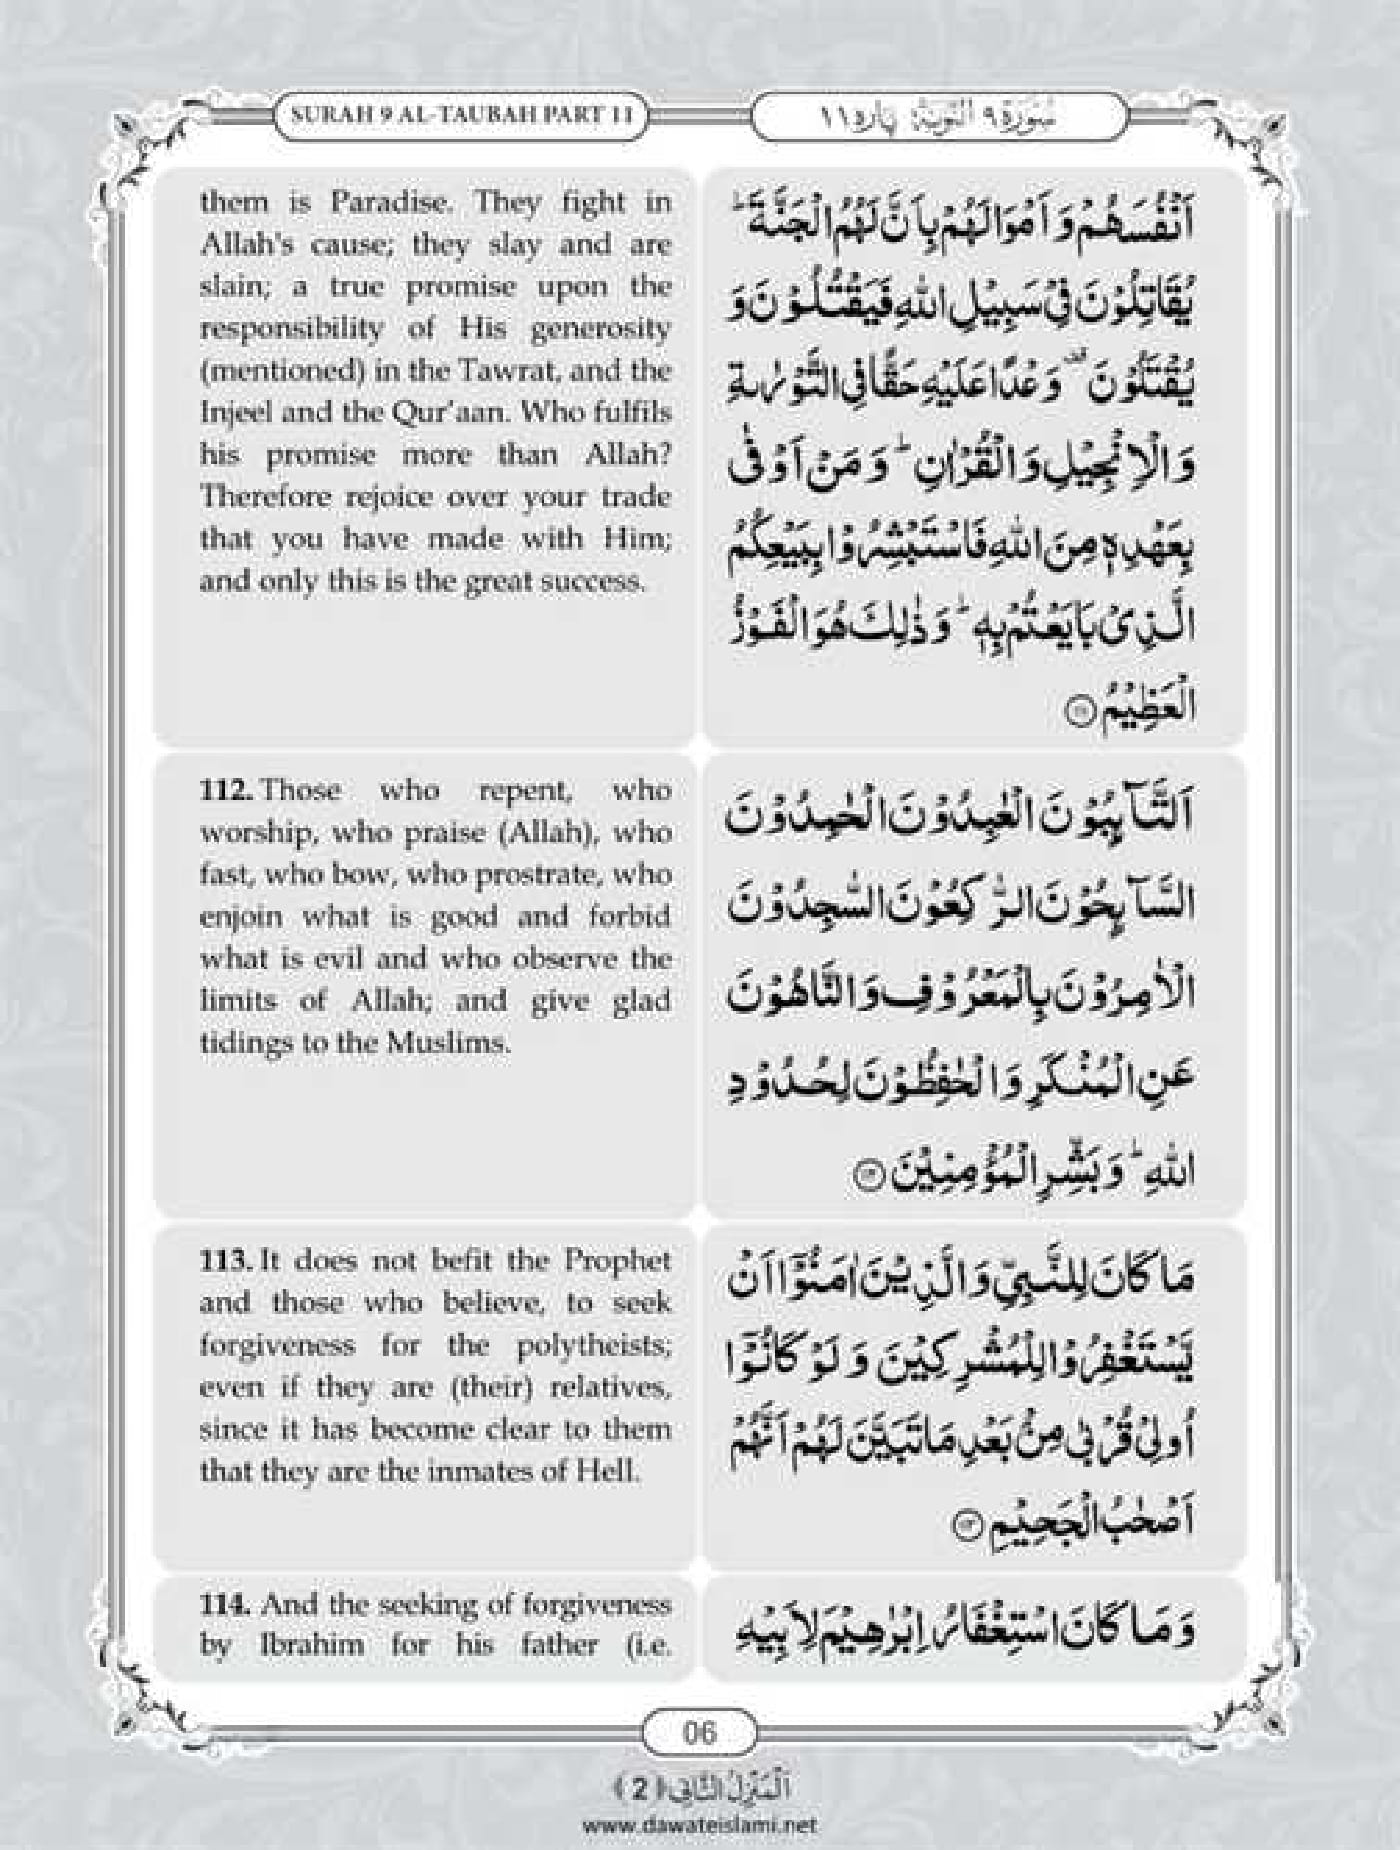 SURAH 9 AL-TAUBAH PART 11
سُوْرَة ٩ اَلتَّوْبَة پاره ١١
them is Paradise. They fight in
Allah's cause; they slay and are
slain; a true promise upon the
responsibility of His generosity
(mentioned) in the Tawrat, and the
Injeel and the Qur'aan. Who fulfils
his promise more than Allah?
Therefore rejoice over your trade
that you have made with Him;
and only this is the great success.
اَنْفُسَهُمْ وَ اَمْوَالَهُمْ بِاَنَّ لَهُمُ الْجَنَّةَ ؕ
يُقَاتِلُوْنَ فِيْ سَبِيْلِ اللّٰهِ فَيَقْتُلُوْنَ وَ
يُقْتَلُوْنَ ۫ وَعْدًا عَلَيْهِ حَقًّا فِي التَّوْرٰىةِ
وَ الْاِنْجِيْلِ وَ الْقُرْاٰنِ ؕ وَ مَنْ اَوْفٰى
بِعَهْدِهٖ مِنَ اللّٰهِ فَاسْتَبْشِرُوْا بِبَيْعِكُمُ
الَّذِيْ بَايَعْتُمْ بِهٖ ؕ وَ ذٰلِكَ هُوَ الْفَوْزُ
الْعَظِيْمُ ۝۱۱۱
112. Those who repent, who
worship, who praise (Allah), who
fast, who bow, who prostrate, who
enjoin what is good and forbid
what is evil and who observe the
limits of Allah; and give glad
tidings to the Muslims.
اَلتَّآىِٕبُوْنَ الْعٰبِدُوْنَ الْحٰمِدُوْنَ
السَّآىِٕحُوْنَ الرّٰكِعُوْنَ السّٰجِدُوْنَ
الْاٰمِرُوْنَ بِالْمَعْرُوْفِ وَ النَّاهُوْنَ
عَنِ الْمُنْكَرِ وَ الْحٰفِظُوْنَ لِحُدُوْدِ
اللّٰهِ ؕ وَ بَشِّرِ الْمُؤْمِنِيْنَ ۝۱۱۲
113. It does not befit the Prophet
and those who believe, to seek
forgiveness for the polytheists;
even if they are (their) relatives,
since it has become clear to them
that they are the inmates of Hell.
مَا كَانَ لِلنَّبِيِّ وَ الَّذِيْنَ اٰمَنُوْۤا اَنْ
يَّسْتَغْفِرُوْا لِلْمُشْرِكِيْنَ وَ لَوْ كَانُوْۤا
اُولِيْ قُرْبٰى مِنْۢ بَعْدِ مَا تَبَيَّنَ لَهُمْ اَنَّهُمْ
اَصْحٰبُ الْجَحِيْمِ ۝۱۱۳
114. And the seeking of forgiveness
by Ibrahim for his father (i.e.
وَ مَا كَانَ اسْتِغْفَارُ اِبْرٰهِيْمَ لِاَبِيْهِ
06
اَلْمَنْزِلُ الثَّانِي ﴿2﴾
www.dawateislami.net